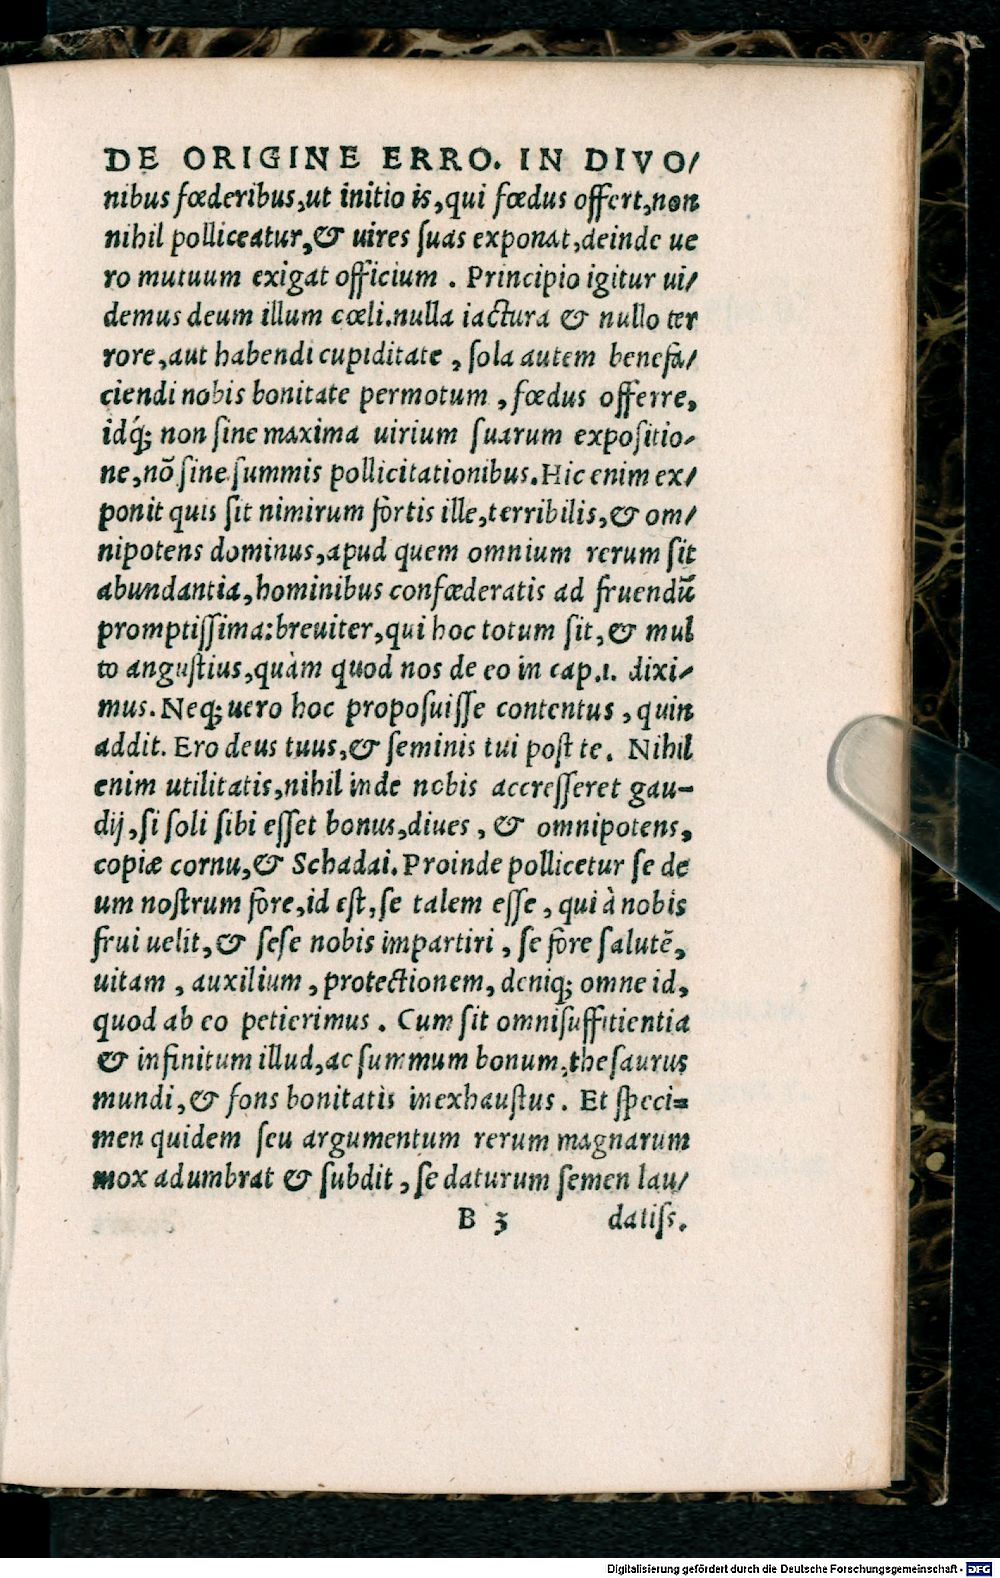 DE ORIGINE ERRO. IN DIVO/
nibus fœderibus,ut initio is,qui fœdus offert,non
nihil polliceatur,& uires suas exponat,deinde ue
ro mutuum exigat officium . Principio igitur ui/
demus deum illum cœli.nulla iactura & nullo ter
rore,aut habendi cupiditate , sola autem benefa/
ciendi nobis bonitate permotum , fœdus offerre,
idq́; non sine maxima uirium suarum expositio/
ne,nō sine summis pollicitationibus.Hic enim ex/
ponit quis sit nimirum fortis ille,terribilis,& om/
nipotens dominus,apud quem omnium rerum sit
abundantia,hominibus confœderatis ad fruendū
promptissima:breuiter,qui hoc totum sit,& mul
to angustius,quàm quod nos de eo in cap.1. dixi/
mus.Neq; uero hoc proposuisse contentus , quin
addit. Ero deus tuus,& seminis tui post te. Nihil
enim utilitatis,nihil inde nobis accresseret gau-
dij,si soli sibi esset bonus,diues , & omnipotens,
copiæ cornu,& Schadai.Proinde pollicetur se de
um nostrum fore,id est,se talem esse , qui à nobis
frui uelit,& sese nobis impartiri , se fore salutē,
uitam , auxilium , protectionem, deniq; omne id,
quod ab eo petierimus . Cum sit omnisuffitientia
& infinitum illud,ac summum bonum,thesaurus
mundi,& fons bonitatis inexhaustus. Et speci=
men quidem seu argumentum rerum magnarum
mox adumbrat & subdit , se daturum semen lau/
B 3 datiss.
Digitalisierung gefördert durch die Deutsche Forschungsgemeinschaft - DFG